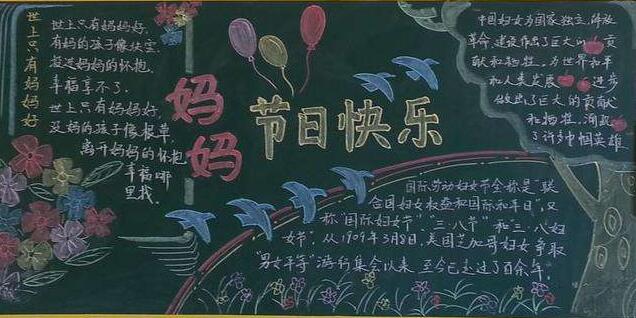 世上只有妈妈好
世上只有妈妈好,
有妈的孩子像块宝,
投进妈妈的怀抱,
幸福享不了。
世上只有妈妈好,
没妈的孩子像根草,
离开妈妈的怀抱,
幸福哪
里找。
妈妈
节日快乐
中国妇女为国家独立、解放
革命、建设作出了巨大的贡
献和牺牲。为世界和平
和人类发展 进步
做出了巨大的贡献
和牺牲,涌现
了许多巾帼英雄
国际劳动妇女节全称是"联
合国妇女权益和国际和平日",又
称"国际妇女节""三·八节"和"三·八妇
女节"。从1909年3月8日,美国芝加哥妇女争取
男女平等"游行集会以来,至今已走过了百余年。